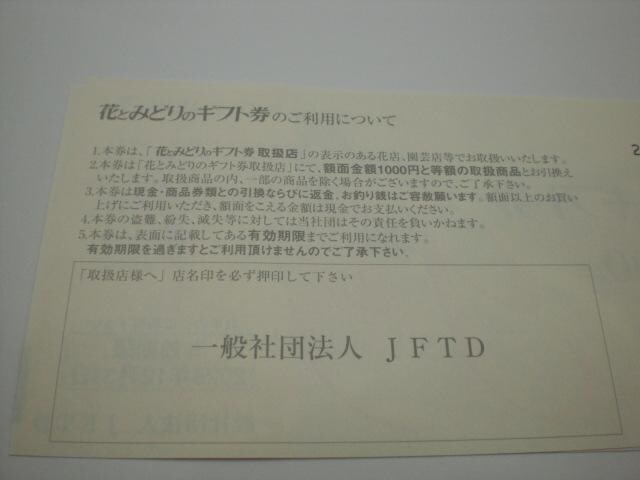 花とみどりのギフト券のご利用について
1.本券は、「花とみどりのギフト券 取扱店」の表示のある花店、園芸店等でお取扱いいたします。
2.本券は「花とみどりのギフト券取扱店」にて、額面金額1000円と等額の取扱商品とお引換え
いたします。取扱商品の内、一部の商品を除く場合がございますので、ご了承下さい。
3.本券は現金・商品券類との引換ならびに返金、お釣り銭はご容赦願います。額面以上のお買い
上げにご利用いただき、額面をこえる金額は現金でお支払いください。
4.本券の盗難、紛失、滅失等に対しては当社団はその責任を負いかねます。
5.本券は、表面に記載してある有効期限までご利用になれます。
有効期限を過ぎますとご利用頂けませんのでご了承下さい。
「取扱店様へ」店名印を必ず押印して下さい
一般社団法人 JFTD